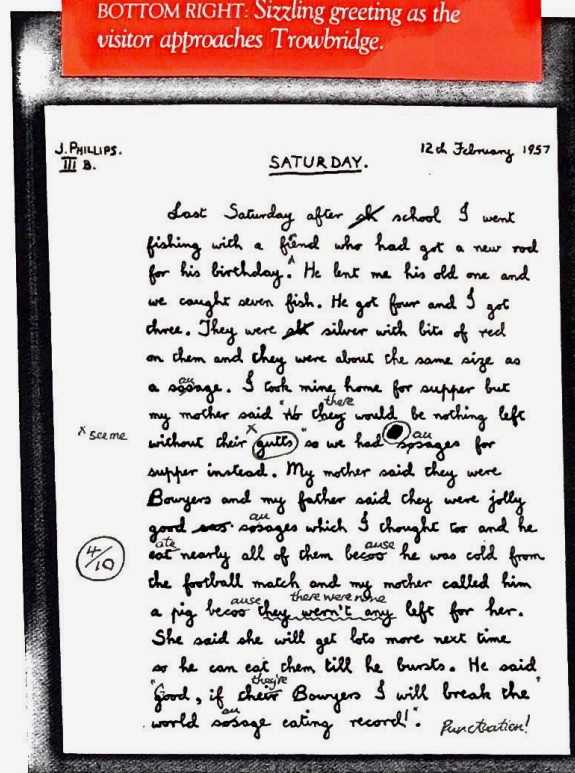 BOTTOM RIGHT: Sizzling greeting as the
visitor approaches Trowbridge.
J. PHILLIPS.
III B.
12th February 1957
SATURDAY.
Last Saturday after sk school I went
fishing with a fiend who had got a new rod
for his birthday. He lent me his old one and
we caught seven fish. He got four and I got
three. They were sk silver with bits of red
on them and they were about the same size as
au
a sosage. I took mine home for supper but
there
my mother said "No they would be nothing left
x see me
x
without their gutts" so we had sosages for
au
supper instead. My mother said they were
Bowyers and my father said they were jolly
au
good sos sosages which I thought too and he
ate ause
eat nearly all of them becos he was cold from
4/10
the football match and my mother called him
ause there were none
a pig becos they wern't any left for her.
She said she will get lots more next time
so he can eat them till he bursts. He said
they're
"Good, if their Bowyers I will break the
au
world sosage eating record!".
Punctuation!